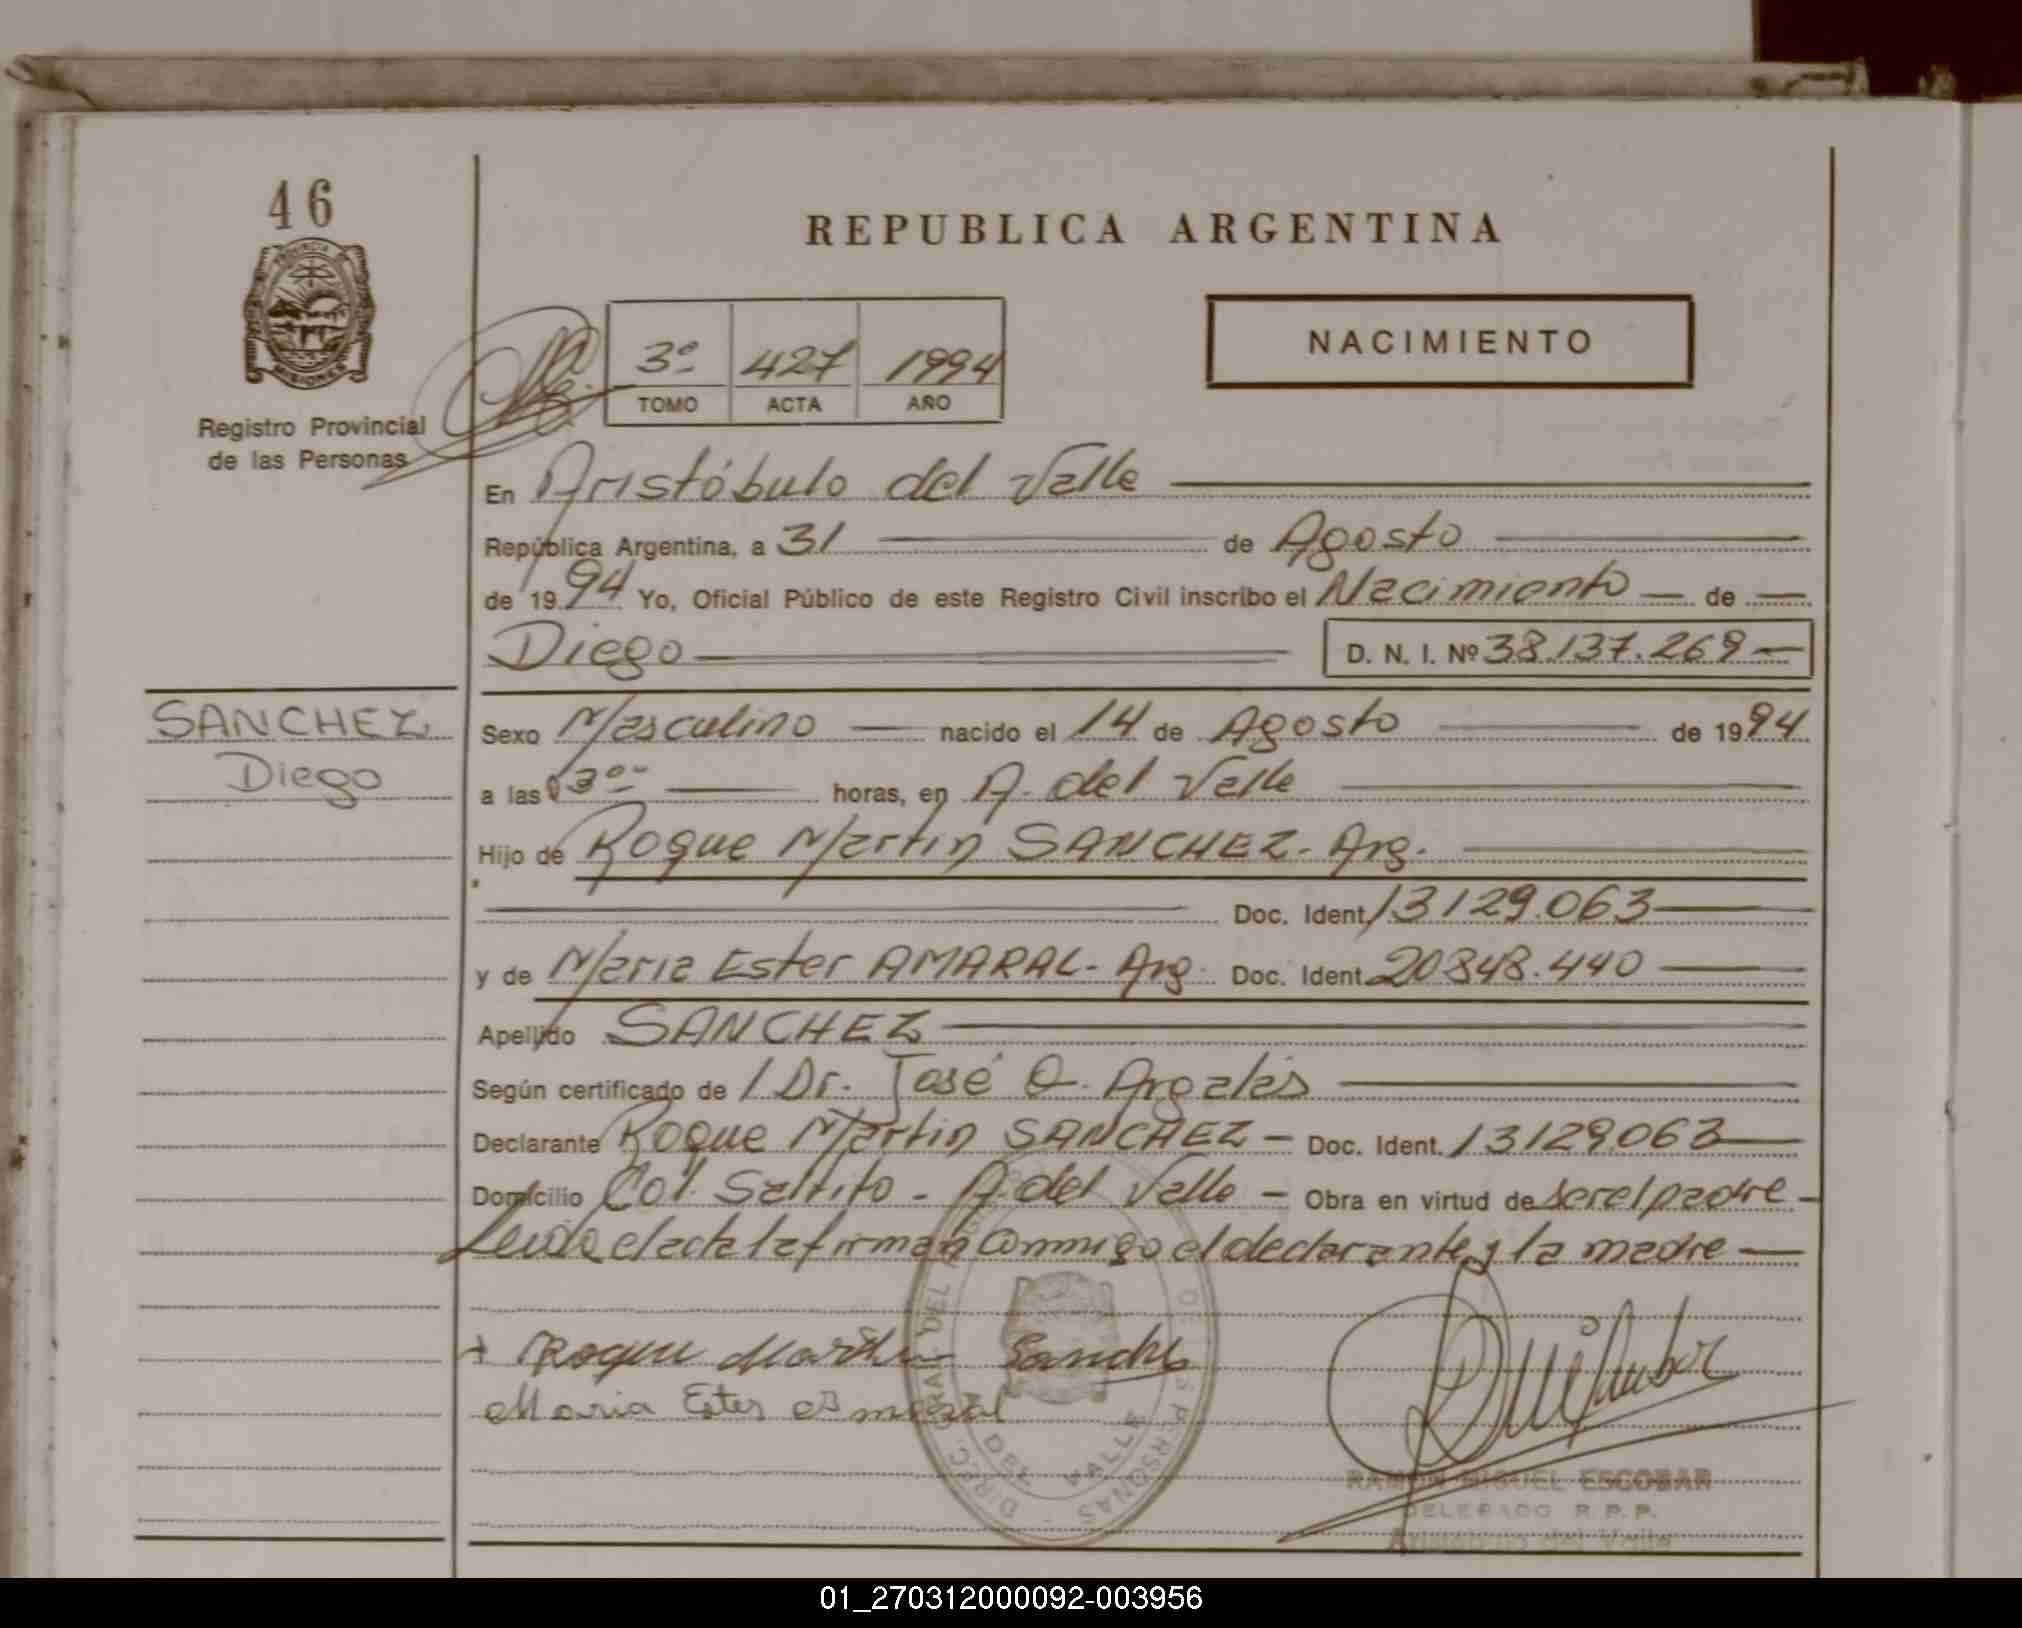 46
PROVINCIA DE
MISIONES
REPUBLICA ARGENTINA
3º 427 1994
TOMO ACTA AÑO
NACIMIENTO
Registro Provincial
de las Personas
En Aristóbulo del Valle
República Argentina, a 31 de Agosto
de 1994 Yo, Oficial Público de este Registro Civil inscribo el Nacimiento de
Diego D. N. I. Nº 38.137.269
SANCHEZ
Diego
Sexo Masculino nacido el 14 de Agosto de 1994
a las 3ºº horas, en A. del Valle
Hijo de Roque Martin SANCHEZ - Arg.
Doc. Ident. 13129.063
y de Maria Ester AMARAL - Arg. Doc. Ident. 20848.440
Apellido SANCHEZ
Según certificado de Dr. José O.
Declarante Roque Martin SANCHEZ - Doc. Ident. 13129063
Domicilio Col. Saltito - A. del Valle - Obra en virtud de ser el padre -
Leida el acta la firman conmigo el declarante y la madre
Roque Martin Sanchez
Maria Ester
DIRECC. GRAL. DEL PERSONAS
DEL VALLE
RAMON MIGUEL ESCOBAR
DELEGADO R.P.P.
Aristóbulo del Valle
01_270312000092-003956